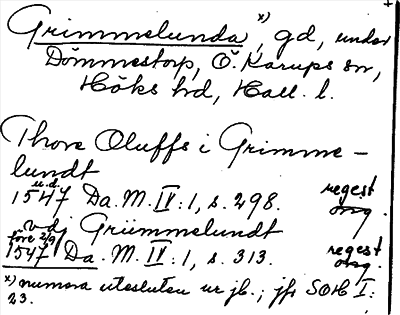 Grimmelunda x), gd, under
Dömmestorp, Ö. Karups sn,
Höks hd, Hall. l.
Thore Oluffs i Grimme-
lundt
u.d.
1547 Da. M. IV: 1, s. 298. regest
org.
v dj Grümmelundt
före 2/9
1547 Da. M. IV: 1, s. 313. regest
org.
x) numera utesluten ur jb.; jfr SOH I:
23.